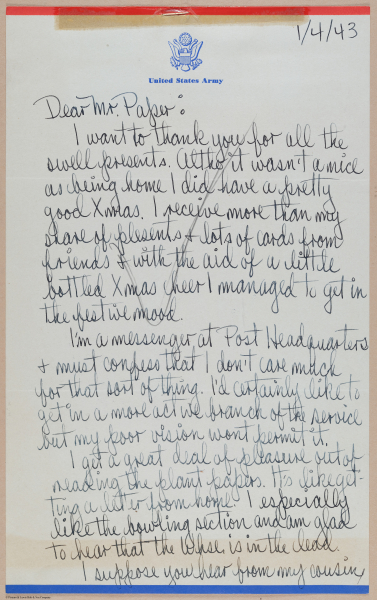 1/4/43
United States Army
Dear Mr. Paper:
I want to thank you for all the
swell presents. Altho it wasn't a nice
as being home I did have a pretty
good Xmas. I receive more than my
share of presents & lots of cards from
friends & with the aid of a little
bottled Xmas cheer I managed to get in
the festive mood.
I'm a messenger at Post Headquarters
& must confess that I don't care much
for that sort of thing. I'd certainly like to
get in a more active branch of the service
but my poor vision wont permit it.
I get a great deal of pleasure out of
reading the plant papers. It's like get-
ting a letter from home. I especially
like the bowling section and am glad
to hear that the Whse. is in the lead.
I suppose you hear from my cousin,